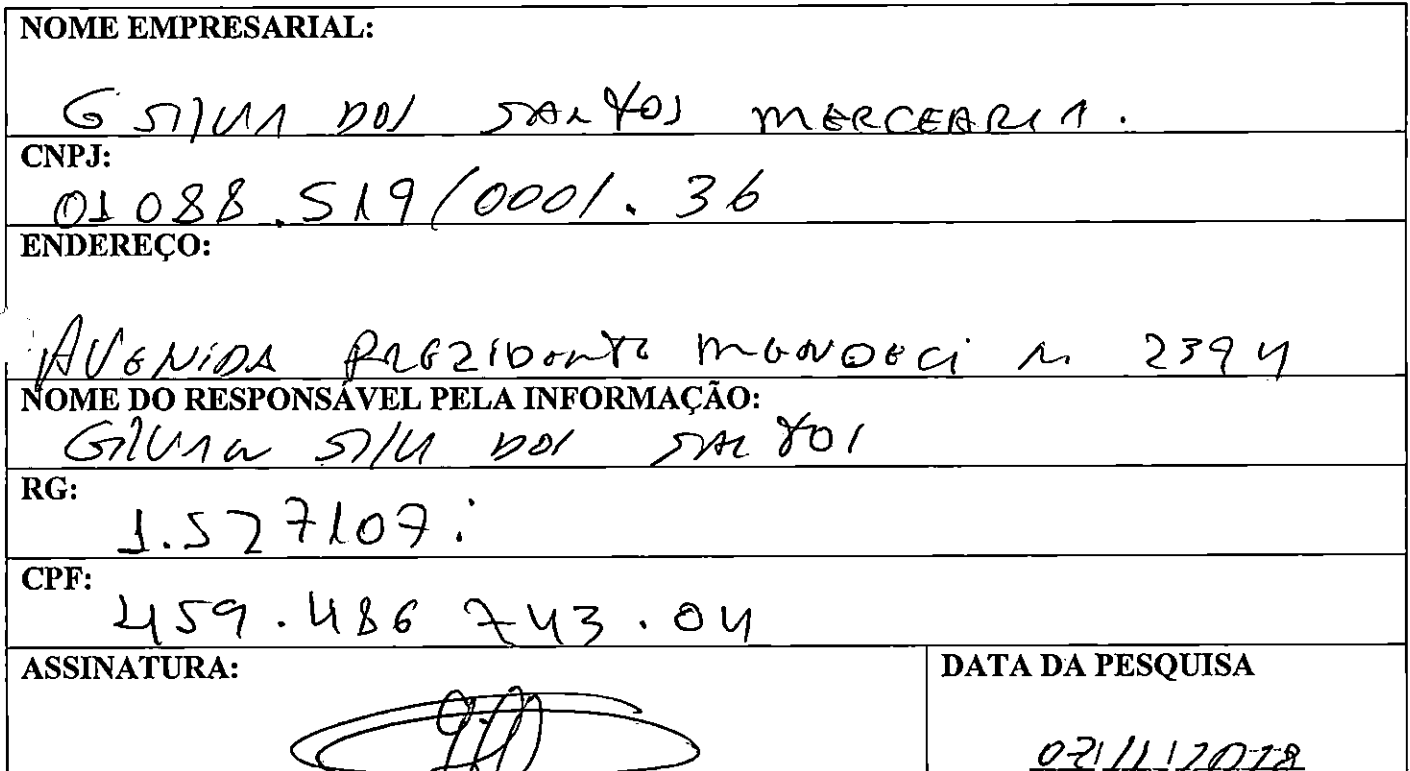 NOME EMPRESARIAL:
G SILVA DOS SANTOS MERCEARIA.
CNPJ:
01 088.519/0001.36
ENDEREÇO:
AVENIDA PREZIDENTE MENDECI N 2394
NOME DO RESPONSÁVEL PELA INFORMAÇÃO:
GILVAN SILV DOS SANTOS
RG:
1.527107.
CPF:
459.486 743.04
ASSINATURA:
DATA DA PESQUISA